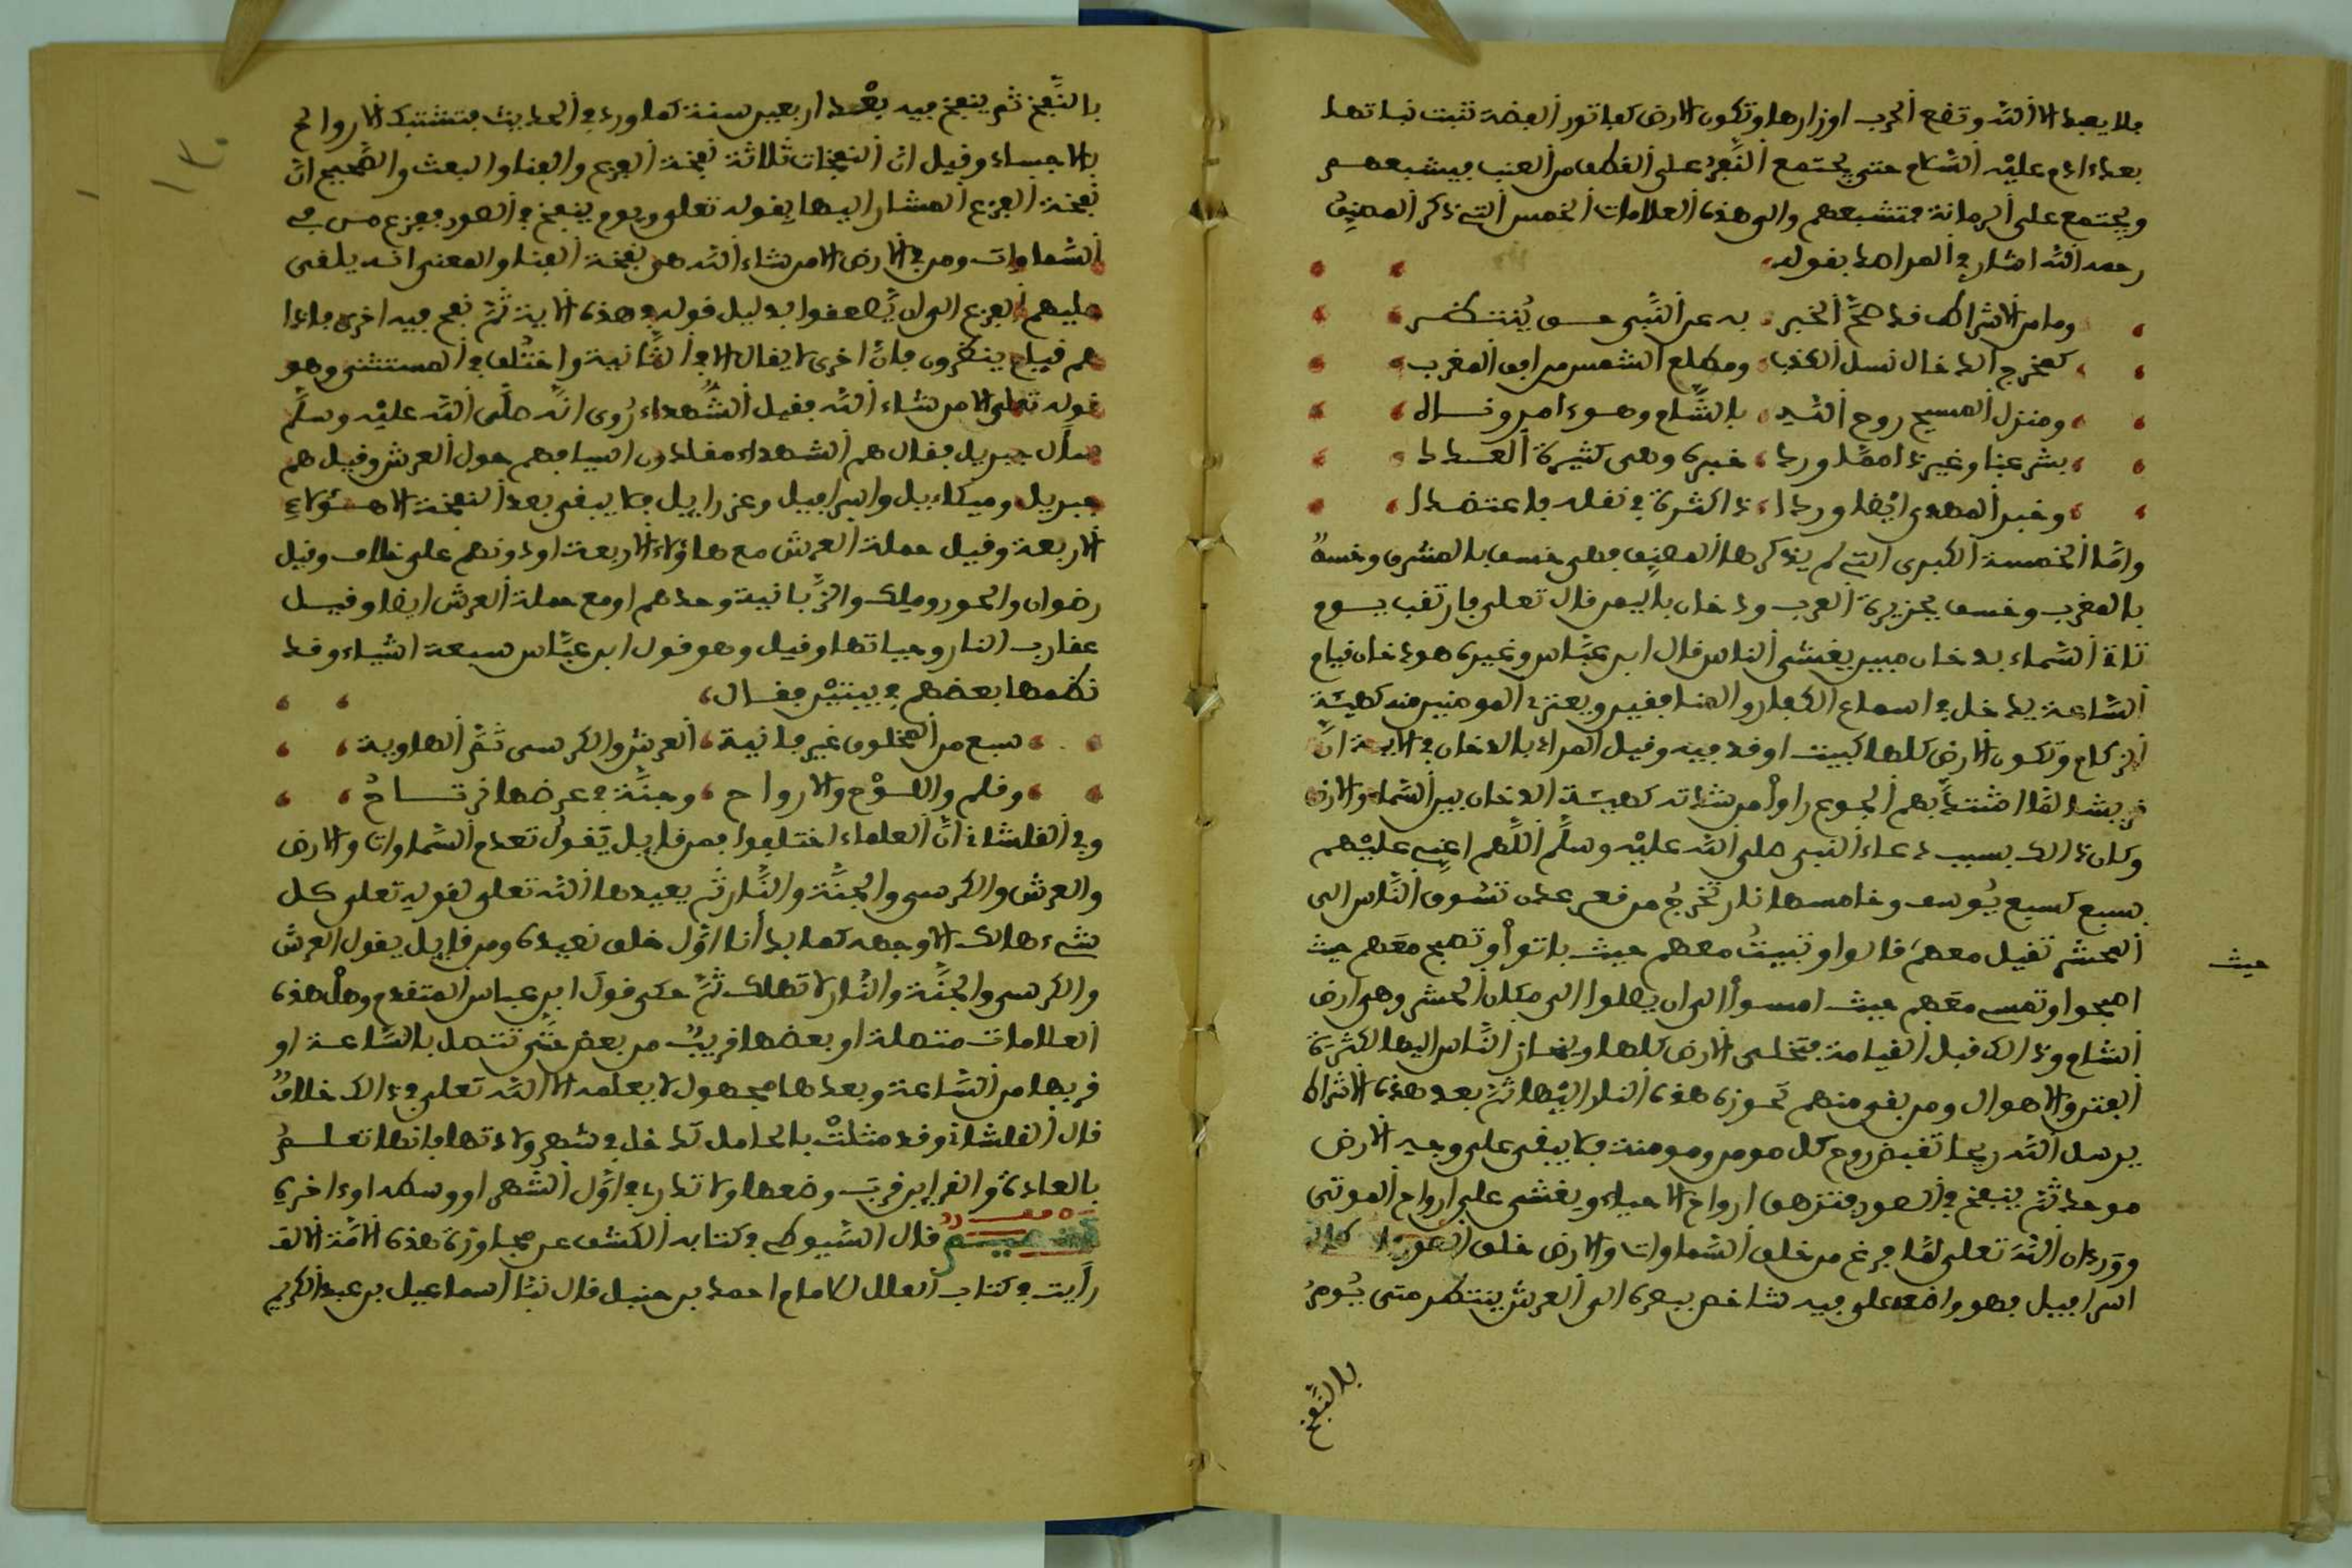 فلا يعبد الا الله وتضع الحرب اوزارها وتكون الارض كفاثور الفضة تنبت نباتها
بعد ادم عليه السلام حتى يجتمع النفر على القطف من العنب فيشبعهم
ويجتمع على الرمانة فتشبعهم والى هذه العلامات الخمس التي ذكر المصنف
رحمه الله اشار في المراصد بقوله
وما من الاشراط قد صح الخبر به عن النبي حق ينتظر
كمخرج الدجال نسل الكذب ومطلع الشمس من افق المغرب
ومنزل المسيح روح الله بالشام وهو امر وقتال
بشرعنا وغير ذا مما ورد خبره وهي كثيرة العدد
وخبر المهدي ايضا وردا ذا كثرة في نقله فاعتضدا
واما الخمسة الكبرى التي لم يذكرها المصنف فهي خسف بالمشرق وخسف
بالمغرب وخسف بجزيرة العرب ودخان باليمن قال تعلى فارتقب يوم
تاتي السماء بدخان مبين يغشى الناس قال ابن عباس وغيره هو دخان قبل قيام
الساعة يدخل في اسماع الكفار والمنافقين ويعتري المومنين منه كهيئة
الزكام وتكون الارض كلها كبيت اوقد فيه وقيل المراد بالدخان في الاية ان
قريشا لما اشتد بهم الجوع راوا من شدته كهيئة الدخان بين السماء والارض
وكان ذالك بسبب دعاء النبي صلى الله عليه وسلم اللهم اعني عليهم
بسبع كسبع يوسف وخامسها نار تخرج من قعر عدن تسوق الناس الى
المحشر تقيل معهم قالوا وتبيت معهم حيث باتوا وتصبح معهم حيث
حيث
اصبحوا وتمسي معهم حيث امسوا الى ان يصلوا الى مكان المحشر وهي ارض
الشام وذالك قبل القيامة فتخلى الارض كلها وينحاز الناس اليها لكثرة
الفتن والاهوال ومن بقي منهم تحوزه هذه النار اليها ثم بعد هذه الاشراط
يرسل الله ريحا تقبض روح كل مومن ومومنة فلا يبقى على وجه الارض
موحد ثم ينفخ في الصور فتزهق ارواح الاحياء ويغشى على ارواح الموتى
وورد ان الله تعلى لما فرغ من خلق السماوات والارض خلق الصور
اسرافيل فهو واضعه على فيه شاخص ببصره الى العرش ينتظر متى يومر
بالنفخ
بالنفخ ثم ينفخ فيه بعد اربعين سنة كما ورد في الحديث فتشتبك الارواح
بالاجساد وقيل ان النفخات ثلاثة نفخة الفزع والفنا والبعث والصحيح ان
نفخة الفزع المشار اليها بقوله تعلى ويوم ينفخ في الصور ففزع من في
السماوات ومن في الارض الا من شاء الله هي نفخة الفنا والمعنى انه يلقى
عليهم الفزع الى ان يصعقوا بدليل قوله في هذه الاية ثم نفخ فيه اخرى فاذا
هم قيام ينظرون فان اخرى لا يقال الا في الثانية واختلف في المستثنى وهو
قوله تعلى الا من شاء الله فقيل الشهداء روي انه صلى الله عليه وسلم
سأل جبريل فقال هم الشهداء مقلدون اسيافهم حول العرش وقيل هم
جبريل وميكاءيل واسرافيل وعزراييل فلا يبقى بعد النفخة الا هؤلاء
الاربعة وقيل حملة العرش مع هاؤلاء الاربعة او دونهم على خلاف وقيل
رضوان والحور وملك والزبانية وحدهم او مع حملة العرش ايضا وقيل
عقارب النار وحياتها وقيل وهو قول ابن عباس سبعة اشياء وقد
نظمها بعضهم في بيتين فقال
سبع من المخلوق غير فانية العرش والكرسي ثم الهاوية
وقلم واللوح والارواح وجنة في عرضها نرتاح
وفي القلشاني ان العلماء اختلفوا فمن قايل يقول تعدم السماوات والارض
والعرش والكرسي والجنة والنار ثم يعيدها الله تعلى لقوله تعلى كل
شيء هالك الا وجهه كما بدأنا اول خلق نعيده ومن قايل يقول العرش
والكرسي والجنة والنار لا تهلك ثم حكى قول ابن عباس المتقدم وهل هذه
العلامات متصلة او بعضها قريب من بعض حتى تتصل بالساعة او
قربها من الساعة وبعدها مجهول لا يعلمه الا الله تعلى في ذالك خلاف
قال القلشاني وقد مثلت بالحامل تدخل في شهر ولادتها فانها تعلم
بالعادة والقراين قرب وضعها ولا تدري في اول الشهر او وسطه او اخره
قال السيوطي في كتابه الكشف عن مجاوزة هذه الامة الالف
رأيت في كتاب العلل للامام احمد بن حنبل قال نبأ اسماعيل بن عبد الكريم